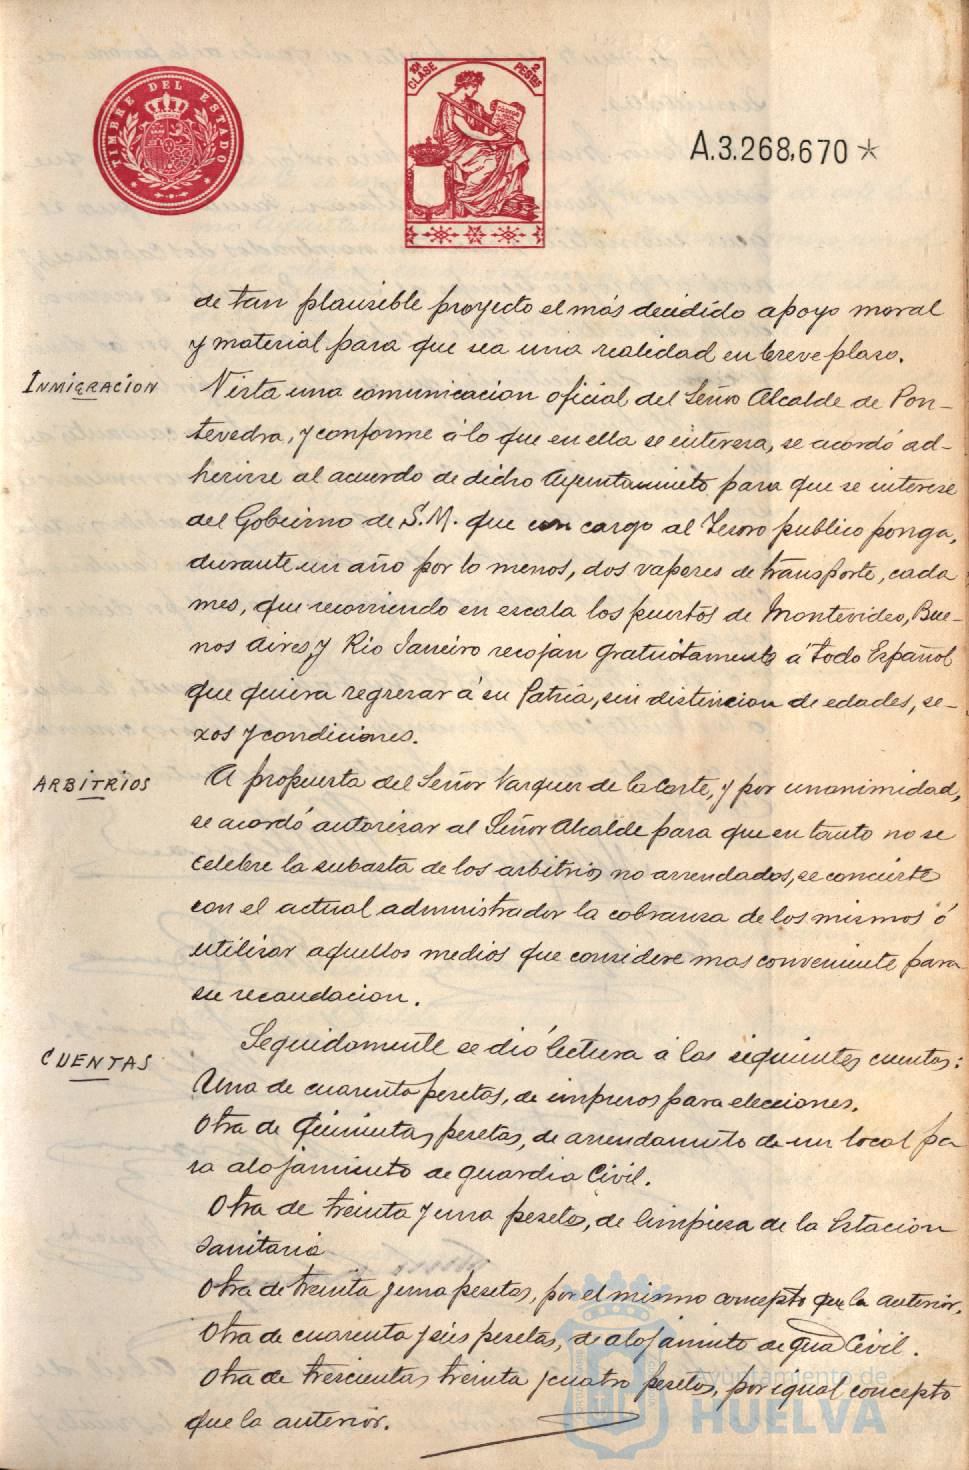 TIMBRE DEL ESTADO
10ª CLASE 2 PESETAS
A.3.268,670 *
de tan plausible proyecto el más decidido apoyo moral
y material para que sea una realidad en breve plaso.
INMIGRACION
Vista una comunicacion oficial del Señor Alcalde de Pon-
tevedra, y conforme á lo que en ella se interesa, se acordó ad-
herirse al acuerdo de dicho Ayuntamiento para que se interese
del Gobierno de S.M. que con cargo al Tesoro publico ponga,
durante un año por lo menos, dos vapores de transporte, cada
mes, que recorriendo en escala los puertos de Montevideo, Bue-
nos Aires y Rio Janeiro recojan gratuitamente á todo Español
que quiera regresar á su Patria, sin distincion de edades, se-
xos y condiciones.
ARBITRIOS
A propuesta del Señor Vazquez de la Corte, y por unanimidad,
se acordó autorisar al Señor Alcalde para que en tanto no se
celebre la subasta de los arbitrios no arrendados, se concierte
con el actual administrador la cobransa de los mismos ó
utilisar aquellos medios que considere mas conveniente para
su recaudacion.
CUENTAS
Seguidamente se dió lectura á las siguientes cuentas:
Una de cuarenta pesetas, de impresos para elecciones.
Otra de Quinientas pesetas, de arrendamiento de un local pa
ra alojamiento de guardia Civil.
Otra de treinta y una pesetas, de limpiesa de la Estacion
Sanitaria
Otra de treinta y una pesetas, por el mismo concepto que la anterior.
Otra de cuarenta y seis pesetas, de alojamiento de gua Civil.
Otra de trescientas treinta y cuatro pesetas, por igual concepto
que la anterior.
Ayuntamiento de
HUELVA